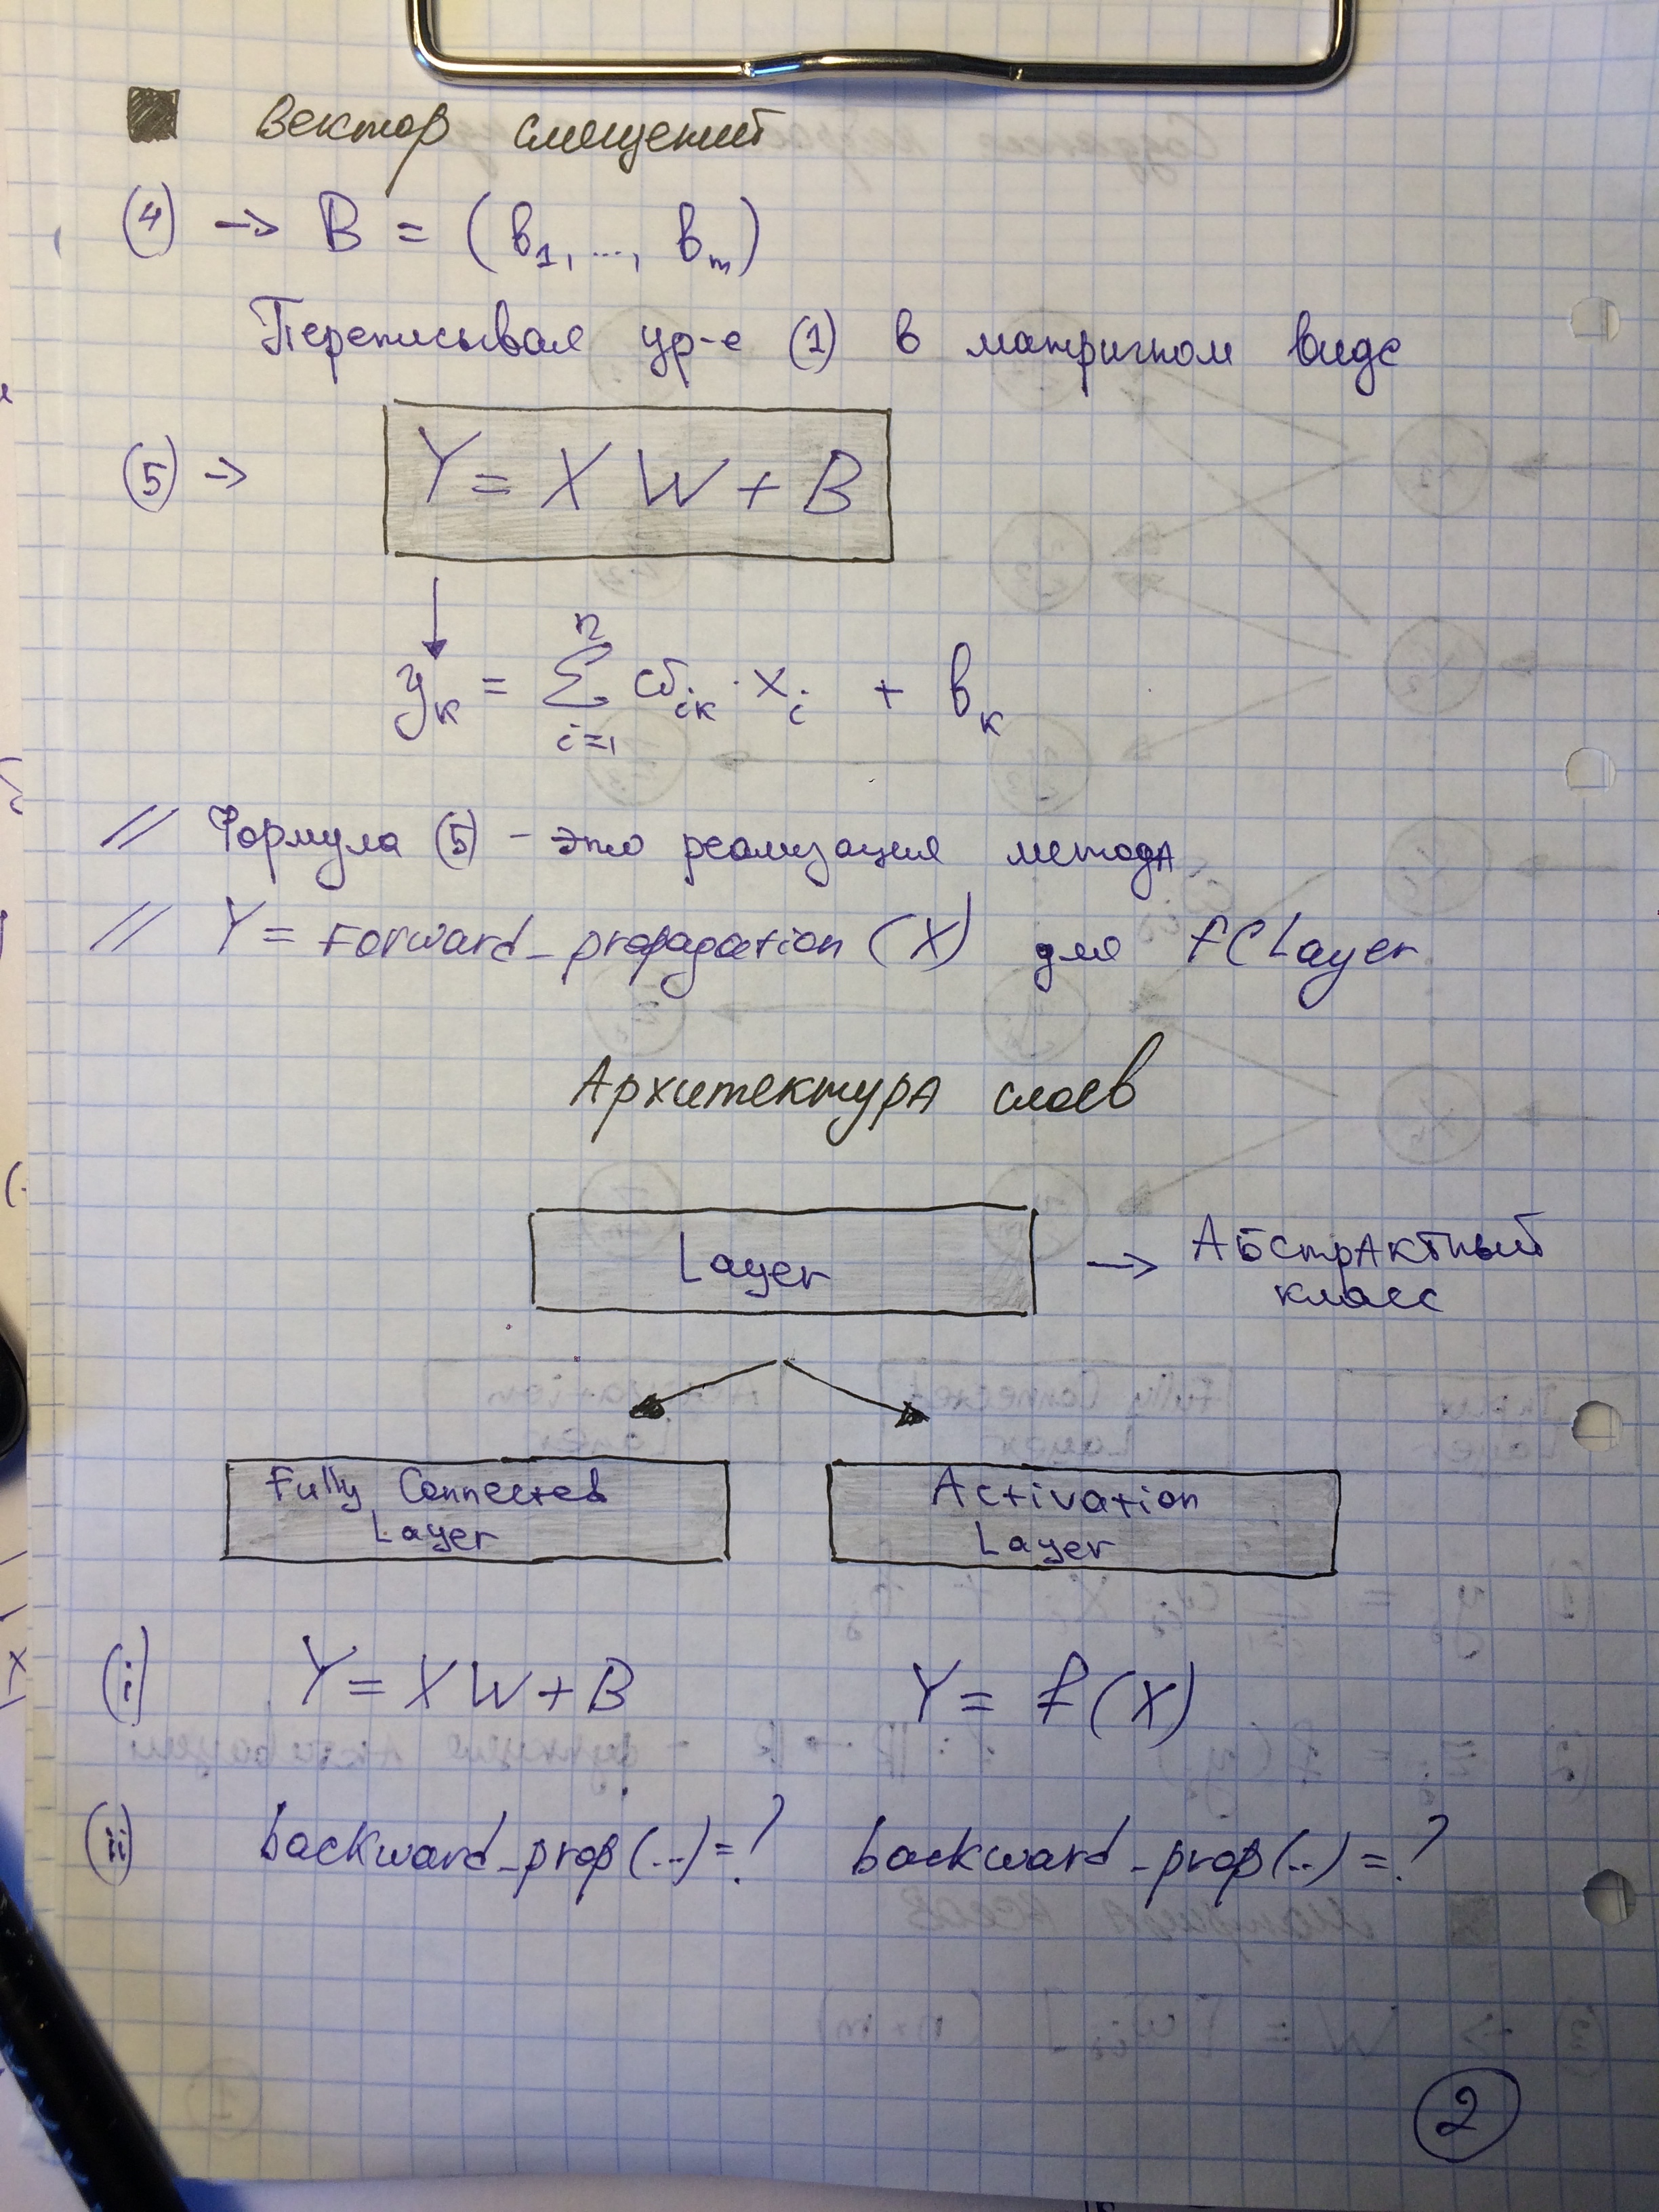 Вектор смещений
(4) → B = (b₁, ..., bₘ)
Переписывая ур-е (1) в матричном виде
(5) → Y = XW + B
yₖ = Σⁿᵢ₌₁ ωᵢₖ · xᵢ + bₖ
// Формула (5) - это реализация метода
// Y = Forward_propagation (X) для FCLayer
Архитектура слоев
Layer → Абстрактный
класс
Fully Connected
Layer
Activation
Layer
(i) Y = XW + B Y = f(X)
(ii) backward_prop(..) = ? backward_prop(..) = ?
2